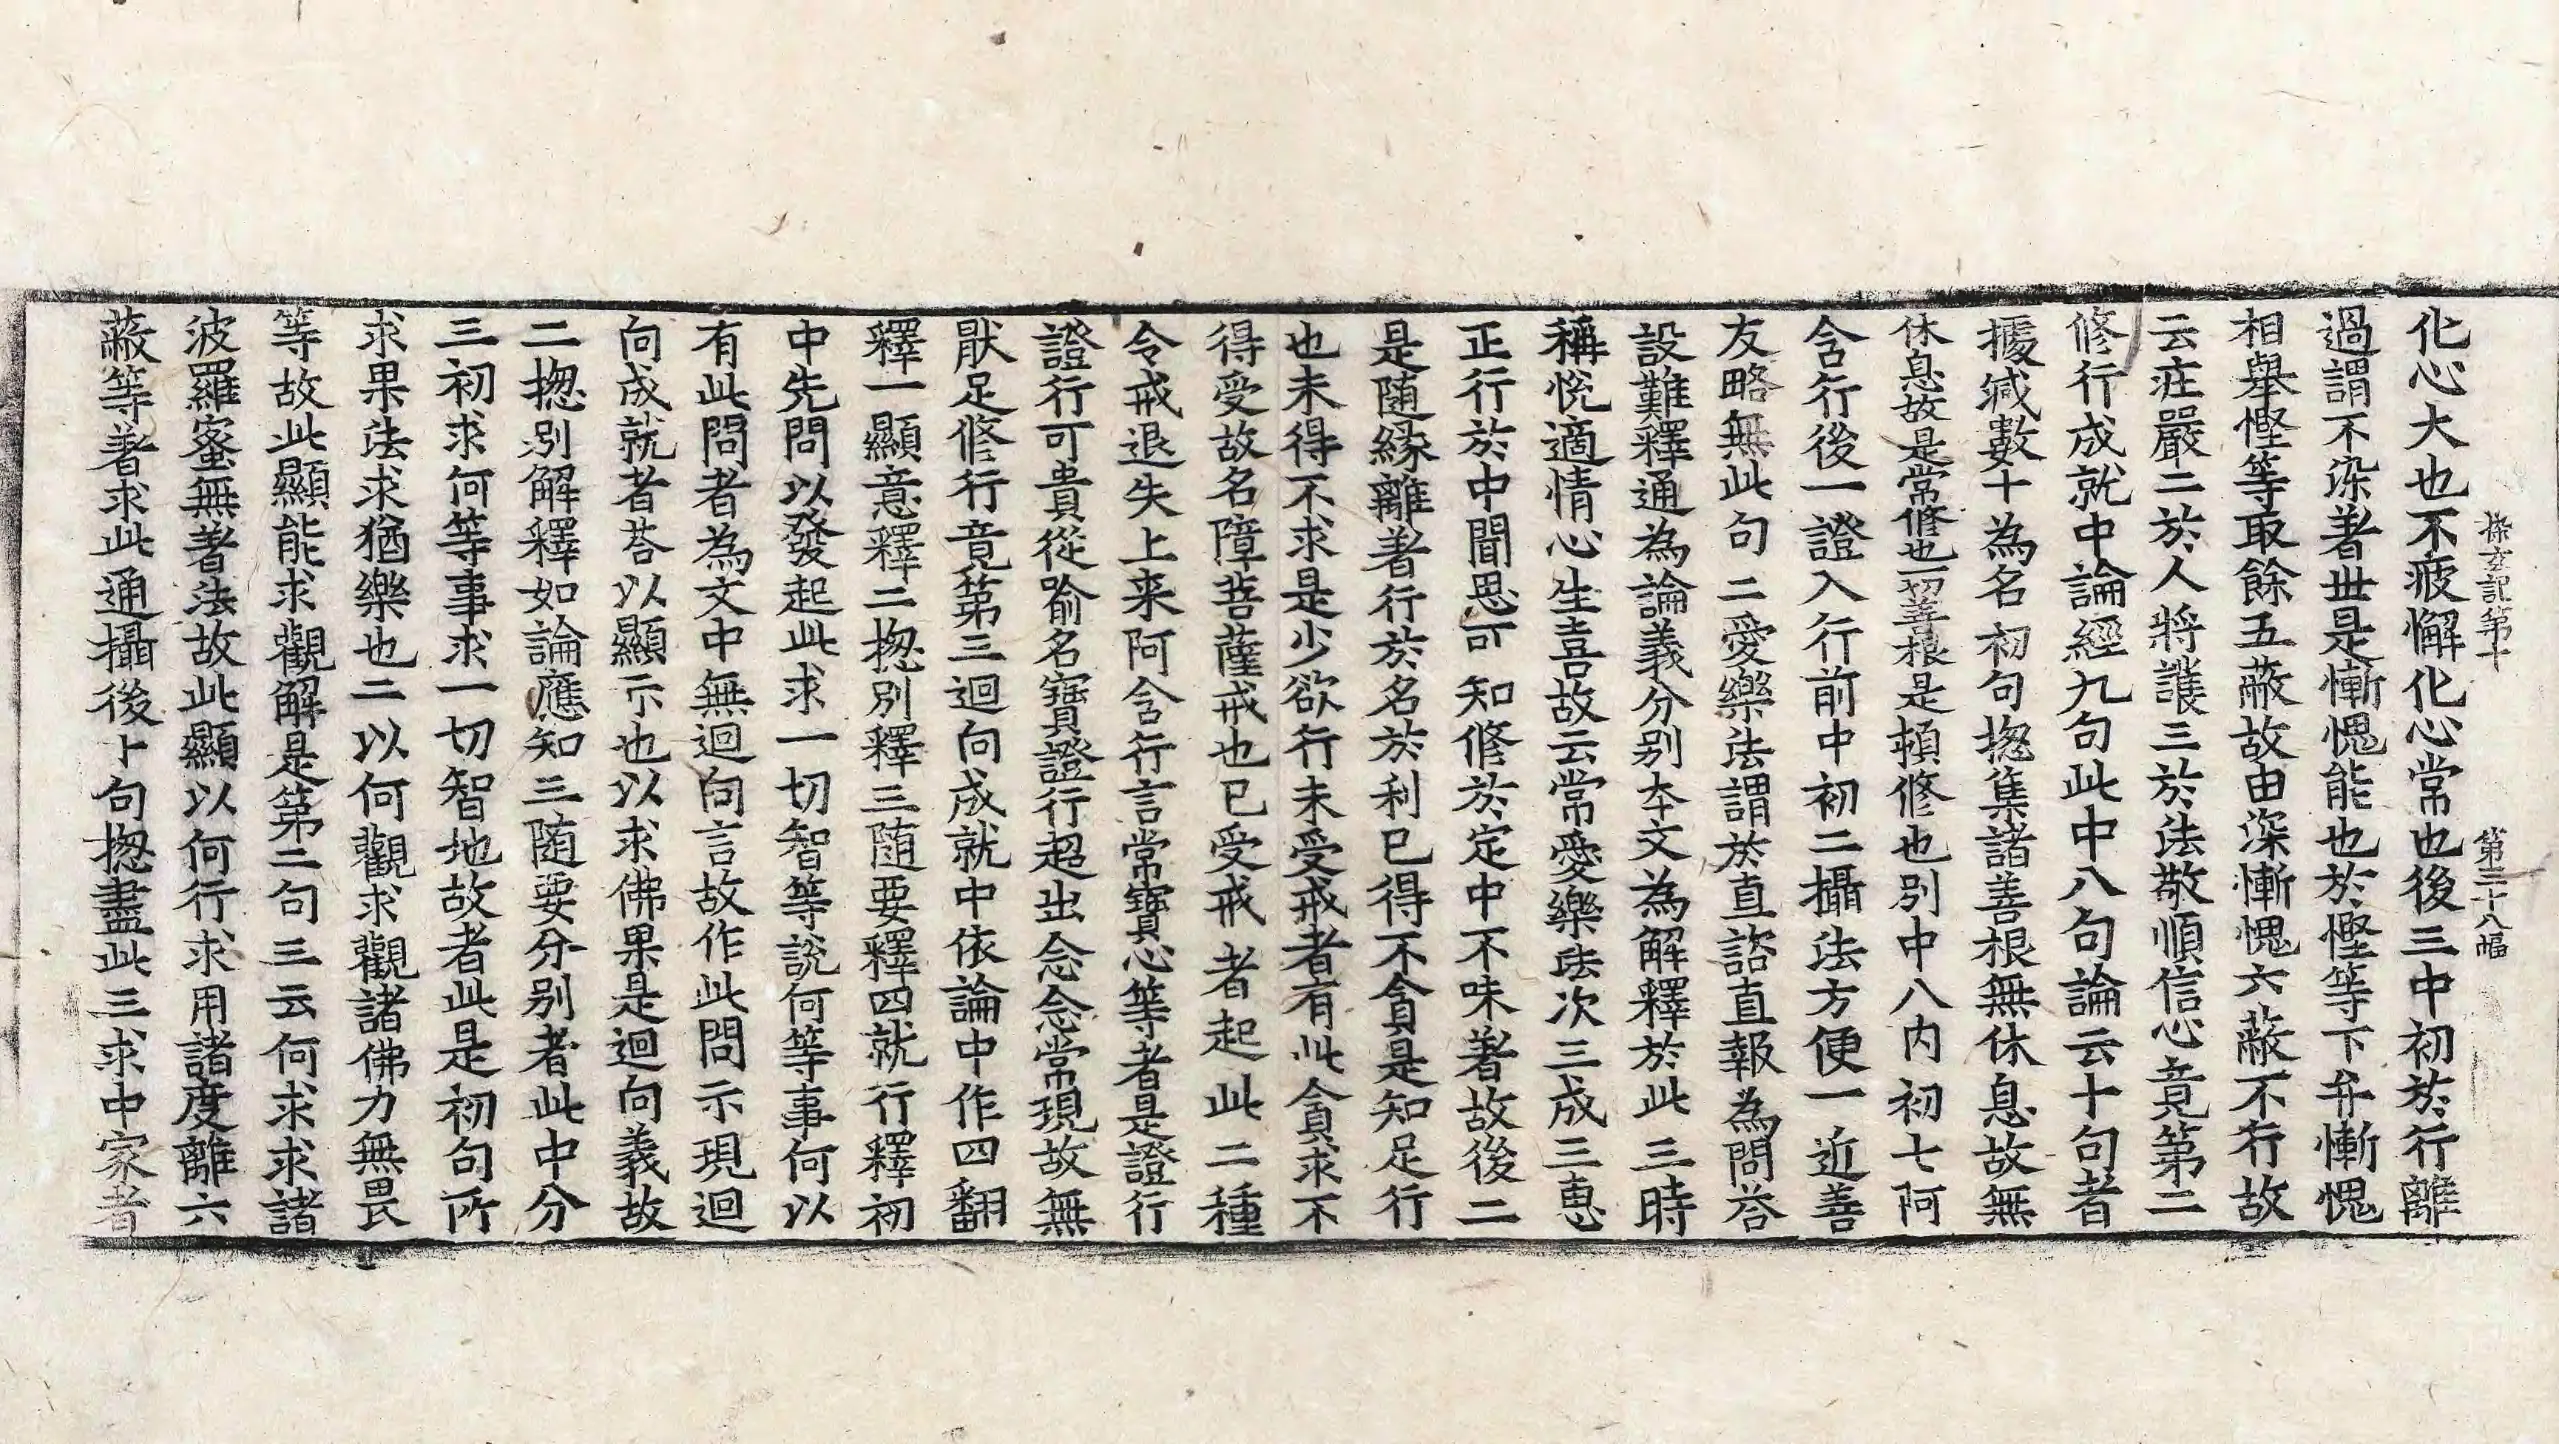 探玄記第十 第三十八幅
化心大也不疲懈化心常也後三中初於行離
過謂不染著世是慚愧能也於慳等下弁慚愧
相舉慳等取餘五蔽故由深慚愧六蔽不行故
云庄嚴二於人將護三於法敬順信心竟第二
修行成就中論經九句此中八句論云十句者
據減數十為名初句揔集諸善根無休息故無
休息故是常修也一切善根是頓修也别中八内初七阿
含行後一證入行前中初二攝法方便一近善
友略無此句二愛樂法謂於直諮直報為問荅
設難釋通為論義分别本文為解釋於此三時
稱悅適情心生喜故云常愛樂法次三成三恵
正行於中聞思可知修於定中不味著故後二
是随緣離著行於名於利已得不貪是知足行
也未得不求是少欲行未受戒者有此貪求不
得受故名障菩薩戒也已受戒者起此二種
令戒退失上来阿含行言常寶心等者是證行
證行可貴從喻名寶證行超出念念常現故無
猒足修行竟第三迴向成就中依論中作四翻
釋一顯意釋二揔别釋三随要釋四就行釋初
中先問以發起此求一切智等說何等事何以
有此問者為文中無迴向言故作此問示現迴
向成就者荅以顯示也以求佛果是迴向義故
二揔别解釋如論應知三随要分别者此中分
三初求何等事求一切智地故者此是初句所
求果法求猶樂也二以何觀求觀諸佛力無畏
等故此顯能求觀解是第二句三云何求求諸
波羅蜜無著法故此顯以何行求用諸度離六
蔽等著求此通攝後十句揔盡此三求中家者